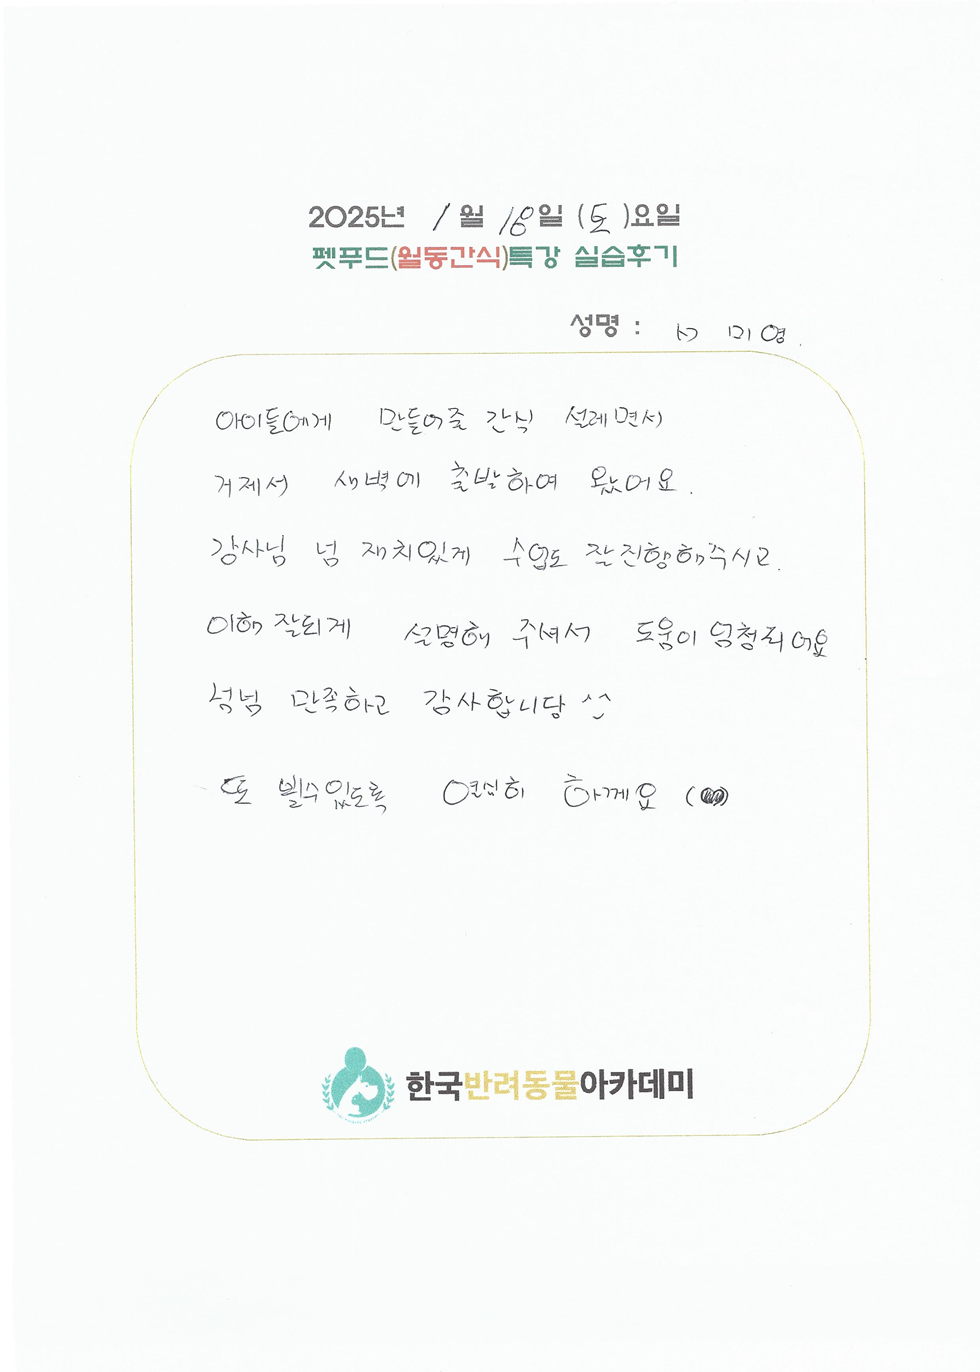 2025년 1월 18일 (토)요일
펫푸드(월동간식)특강 실습후기
성명 : 서 미영.
아이들에게 만들어줄 간식 설레면서
거제서 새벽에 출발하여 왔어요.
강사님 넘 재치있게 수업도 잘진행해주시고.
이해 잘되게 설명해 주셔서 도움이 엄청되어요
넘넘 만족하고 감사합니당 ^^
또 뵐수있도록 열심히 하께요
한국반려동물아카데미